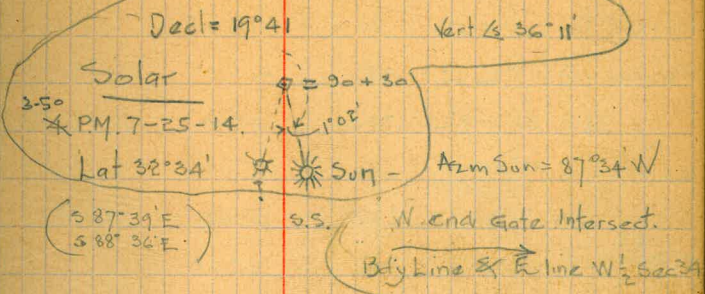 Decl = 19°41 Vert ∠s 36°11'
Solar = 90 + 30
3-50
P.M. 7-25-14. 1°02'
Lat 32°34' Sun - Azm Sun = 87°34' W
?
S 87°39' E S.S. W. end Gate Intersect.
S 88°36' E
Bdy Line & E line W½ Sec 34